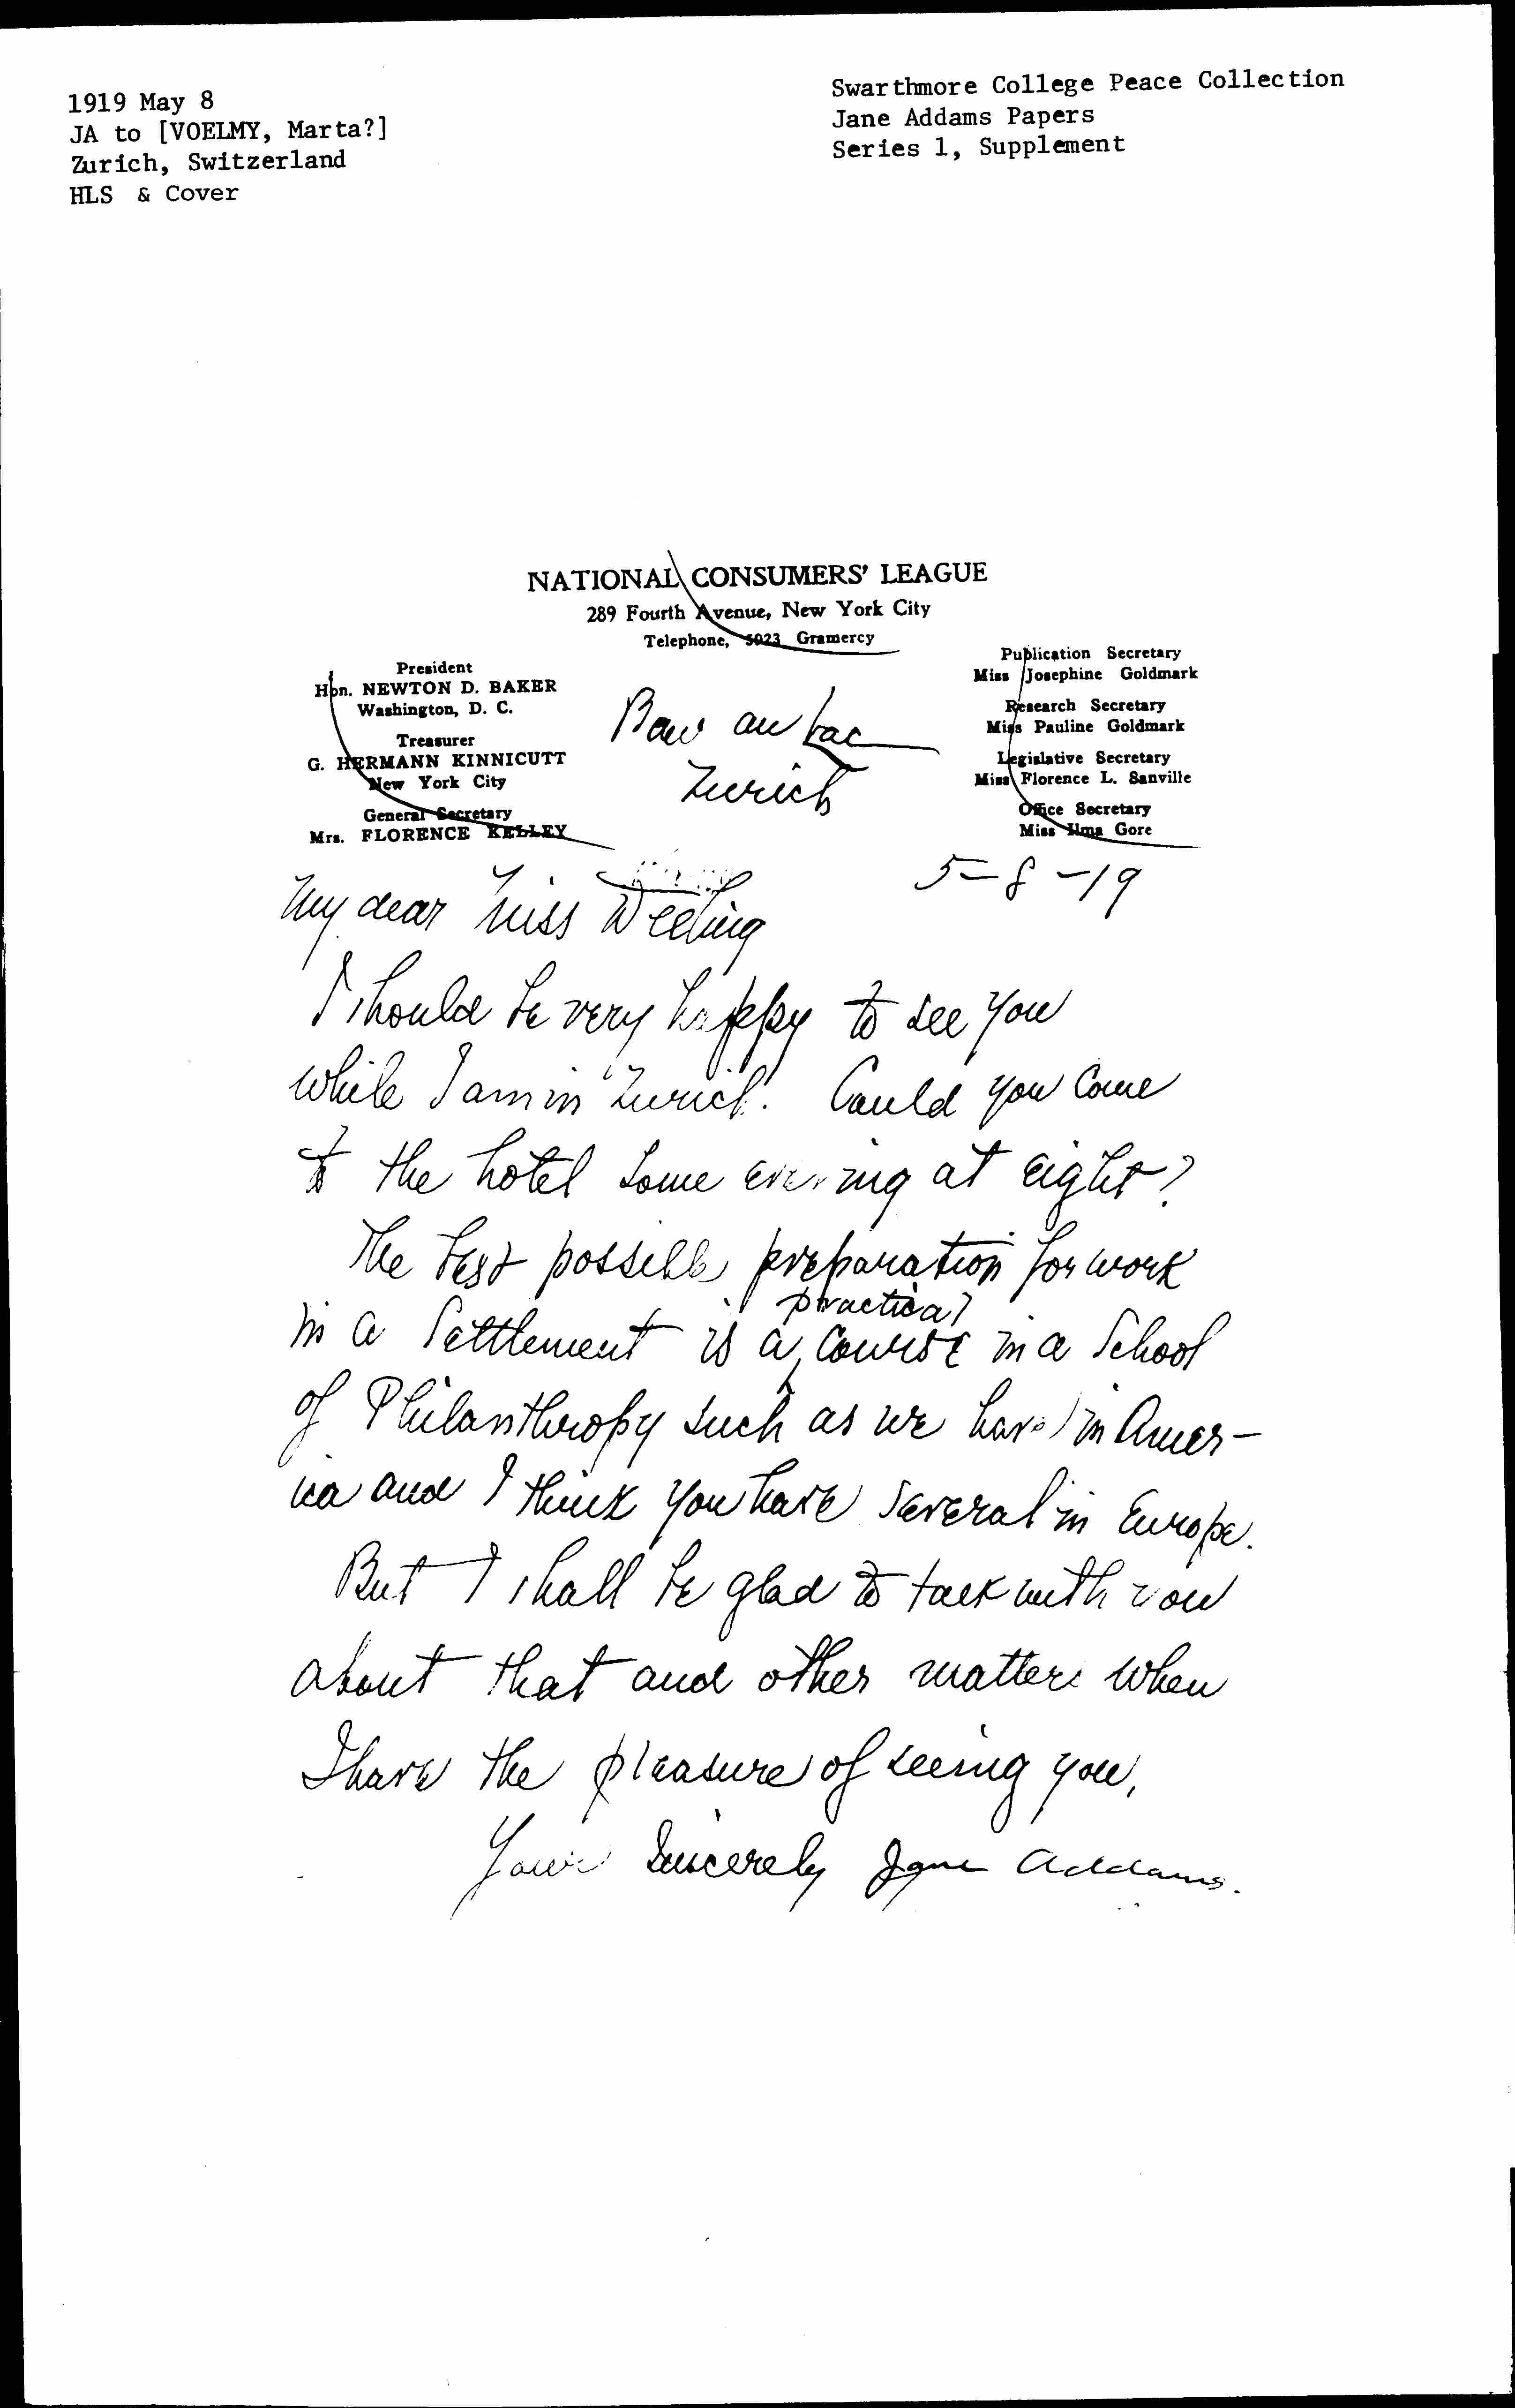 1919 May 8
JA to [VOELMY, Marta?]
Zurich, Switzerland
HLS & Cover
Swarthmore College Peace Collection
Jane Addams Papers
Series 1, Supplement
NATIONAL CONSUMERS' LEAGUE
289 Fourth Avenue, New York City
Telephone, 5023 Gramercy
President
Hon. NEWTON D. BAKER
Washington, D. C.
Treasurer
G. HERMANN KINNICUTT
New York City
General Secretary
Mrs. FLORENCE KELLEY
Publication Secretary
Miss Josephine Goldmark
Research Secretary
Miss Pauline Goldmark
Legislative Secretary
Miss Florence L. Sanville
Office Secretary
Miss Gore
Baur au Lac
Zurich
5-8-19
My dear Miss
I should be very happy to see you
while I am in Zurich. Could you come
to the hotel some evening at eight?
The best possible preparation for work
in a Settlement is a practical course in a School
of Philanthropy such as we have in Amer-
ica and I think you have several in Europe.
But I shall be glad to talk with you
about that and other matters when
I have the pleasure of seeing you,
Yours Sincerely Jane Addams.